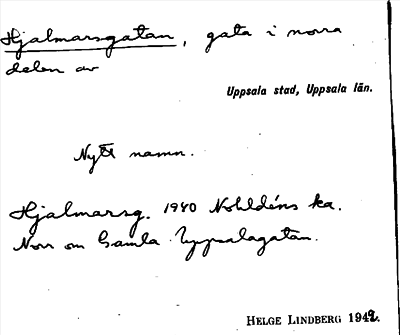 Hjalmarsgatan, gata i norra
delen av
Uppsala stad, Uppsala län.
Nytt namn.
Hjalmarsg. 1940 Nohldéns ka.
Norr om Gamla Uppsalagatan.
HELGE LINDBERG 1942.